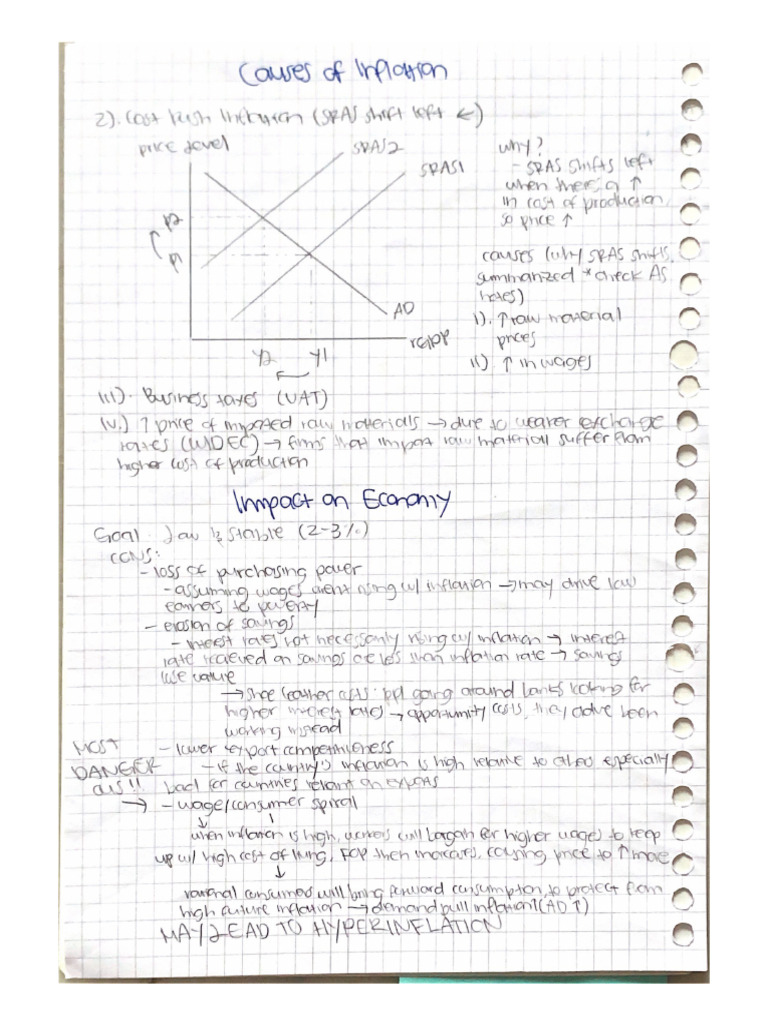 Causes of Inflation
2). Cost Push Inflation (SRAS shift left ←)
price level
SRAS2
SRAS1
P2
P1
AD
rGDP
Y2 Y1
why?
- SRAS shifts left
when there's a ↑
in cost of production
so price ↑
causes (why SRAS shifts,
summarized *check AS
notes)
i). ↑ raw material
prices
ii) ↑ in wages
iii). Business taxes (VAT)
iv.) ↑ price of imported raw materials → due to weaker exchange
rates (WIDEC) → firms that import raw material suffer from
higher cost of production
Impact on Economy
Goal: Low & stable (2-3%)
CONS:
- loss of purchasing power
- assuming wages arent rising w/ inflation → may drive low
earners to poverty
- erosion of savings
- interest rates not necessarily rising w/ inflation → interest
rate recieved on savings are less than inflation rate → savings
lose value
→ shoe leather costs: ppl going around banks looking for
higher interest rates → opportunity costs, they couldve been
working instead
- lower export competitiveness
- if the country's inflation is high relative to especially
bad for countries reliant on exports
MOST
DANGER
OUS!!
→ - wage/consumer spiral
↓ ↓
when inflation is high, workers will bargain for higher wages to keep
up w/ high cost of living, FOP then increases, causing price to ↑ more
↓
rational consumers will bring forward consumption to protect from
high future inflation → demand pull inflation (AD ↑)
MAY LEAD TO HYPERINFLATION